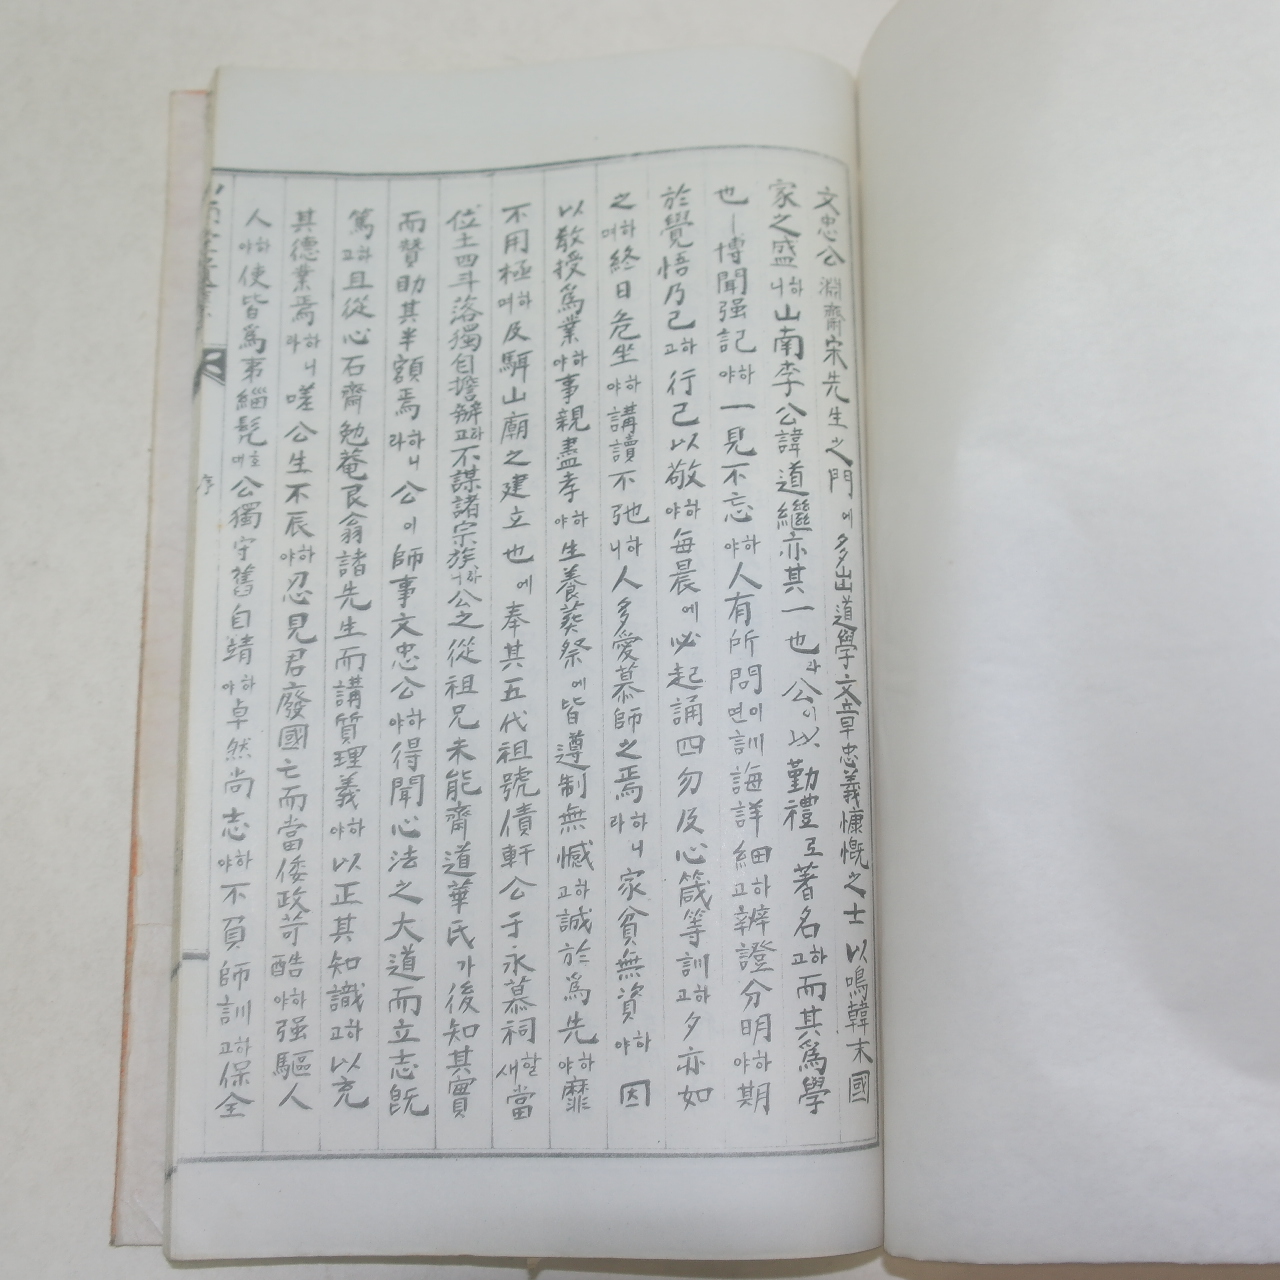 文忠公淵齋宋先生之門에多出道學文章忠義慷慨之士以鳴韓末國
家之盛하니山南李公諱道繼亦其一也라公이以勤禮로著名하고而其爲學
也ㅣ博聞强記하야一見不忘하야人有所問이면訓誨詳細하고辨證分明하야期
於覺悟乃已하고行己以敬하야每晨에必起誦四勿及心箴等訓하고夕亦如
之하며終日危坐하야講讀不弛하니人多愛慕師之焉하니라家貧無資하야因
以敎授爲業하야事親盡孝하야生養葬祭에皆遵制無憾하고誠於爲先하야靡
不用極하며及騈山廟之建立也에奉其五代祖號債軒公于永慕祠할새當
位土四斗落獨自擔辦라고不謀諸宗族라니公之從祖兄未能齋道華氏가後知其實
而贊助其半額焉하니라公이師事文忠公하야得聞心法之大道而立志旣
篤하고且從心石齋勉菴艮翁諸先生而講質理義하야以正其知識하고以充
其德業焉하니라嗟公生不辰하야忍見君廢國亡而當倭政苛酷하야强驅人
人하야使皆爲夷緇髡호대公獨守舊自靖하야卓然尚志하야不負師訓하고保全
序